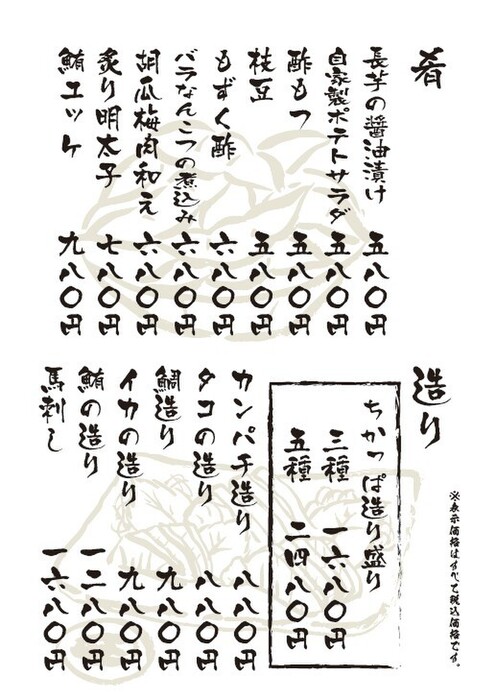 肴
長芋の醤油漬け 五八〇円
自家製ポテトサラダ 五八〇円
酢もつ 五八〇円
枝豆 五八〇円
もずく酢 六八〇円
バラなんこつの煮込み 六八〇円
胡瓜梅肉和え 六八〇円
炙り明太子 七八〇円
鮪ユッケ 九八〇円
造り
ちかっぱ造り盛り
三種 一六八〇円
五種 二四八〇円
カンパチ造り 八八〇円
タコの造り 八八〇円
鯛造り 九八〇円
イカの造り 九八〇円
鮪の造り 一二八〇円
馬刺し 一六八〇円
※表示価格はすべて税込価格です。